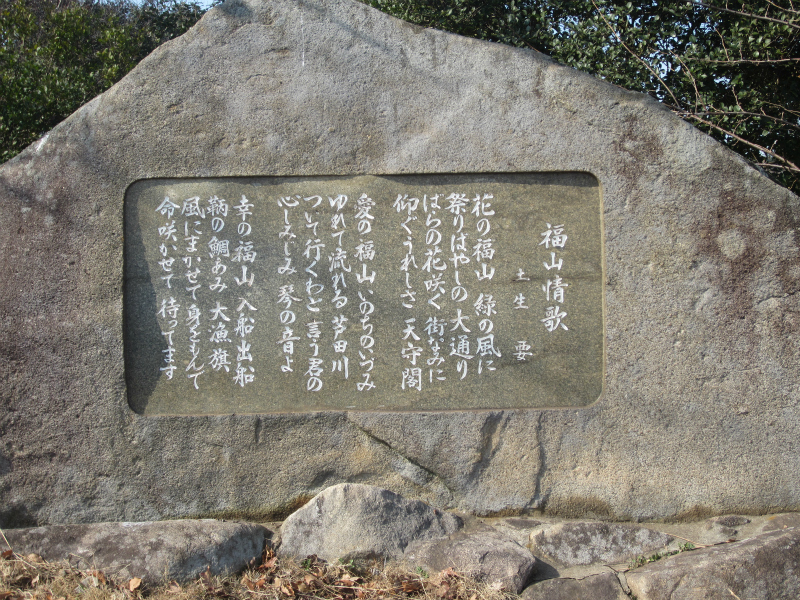 福山情歌
土生 要
花の福山 緑の風に
祭りばやしの 大通り
ばらの花咲く 街なみに
仰ぐうれしさ 天守閣
愛の福山 いのちのいづみ
ゆれて流れる 芦田川
ついて行くわと 言う君の
心しみじみ 琴の音よ
幸の福山 入船出船
鞆の鯛あみ 大漁旗
風にまかせて 身をもんで
命咲かせて 待ってます